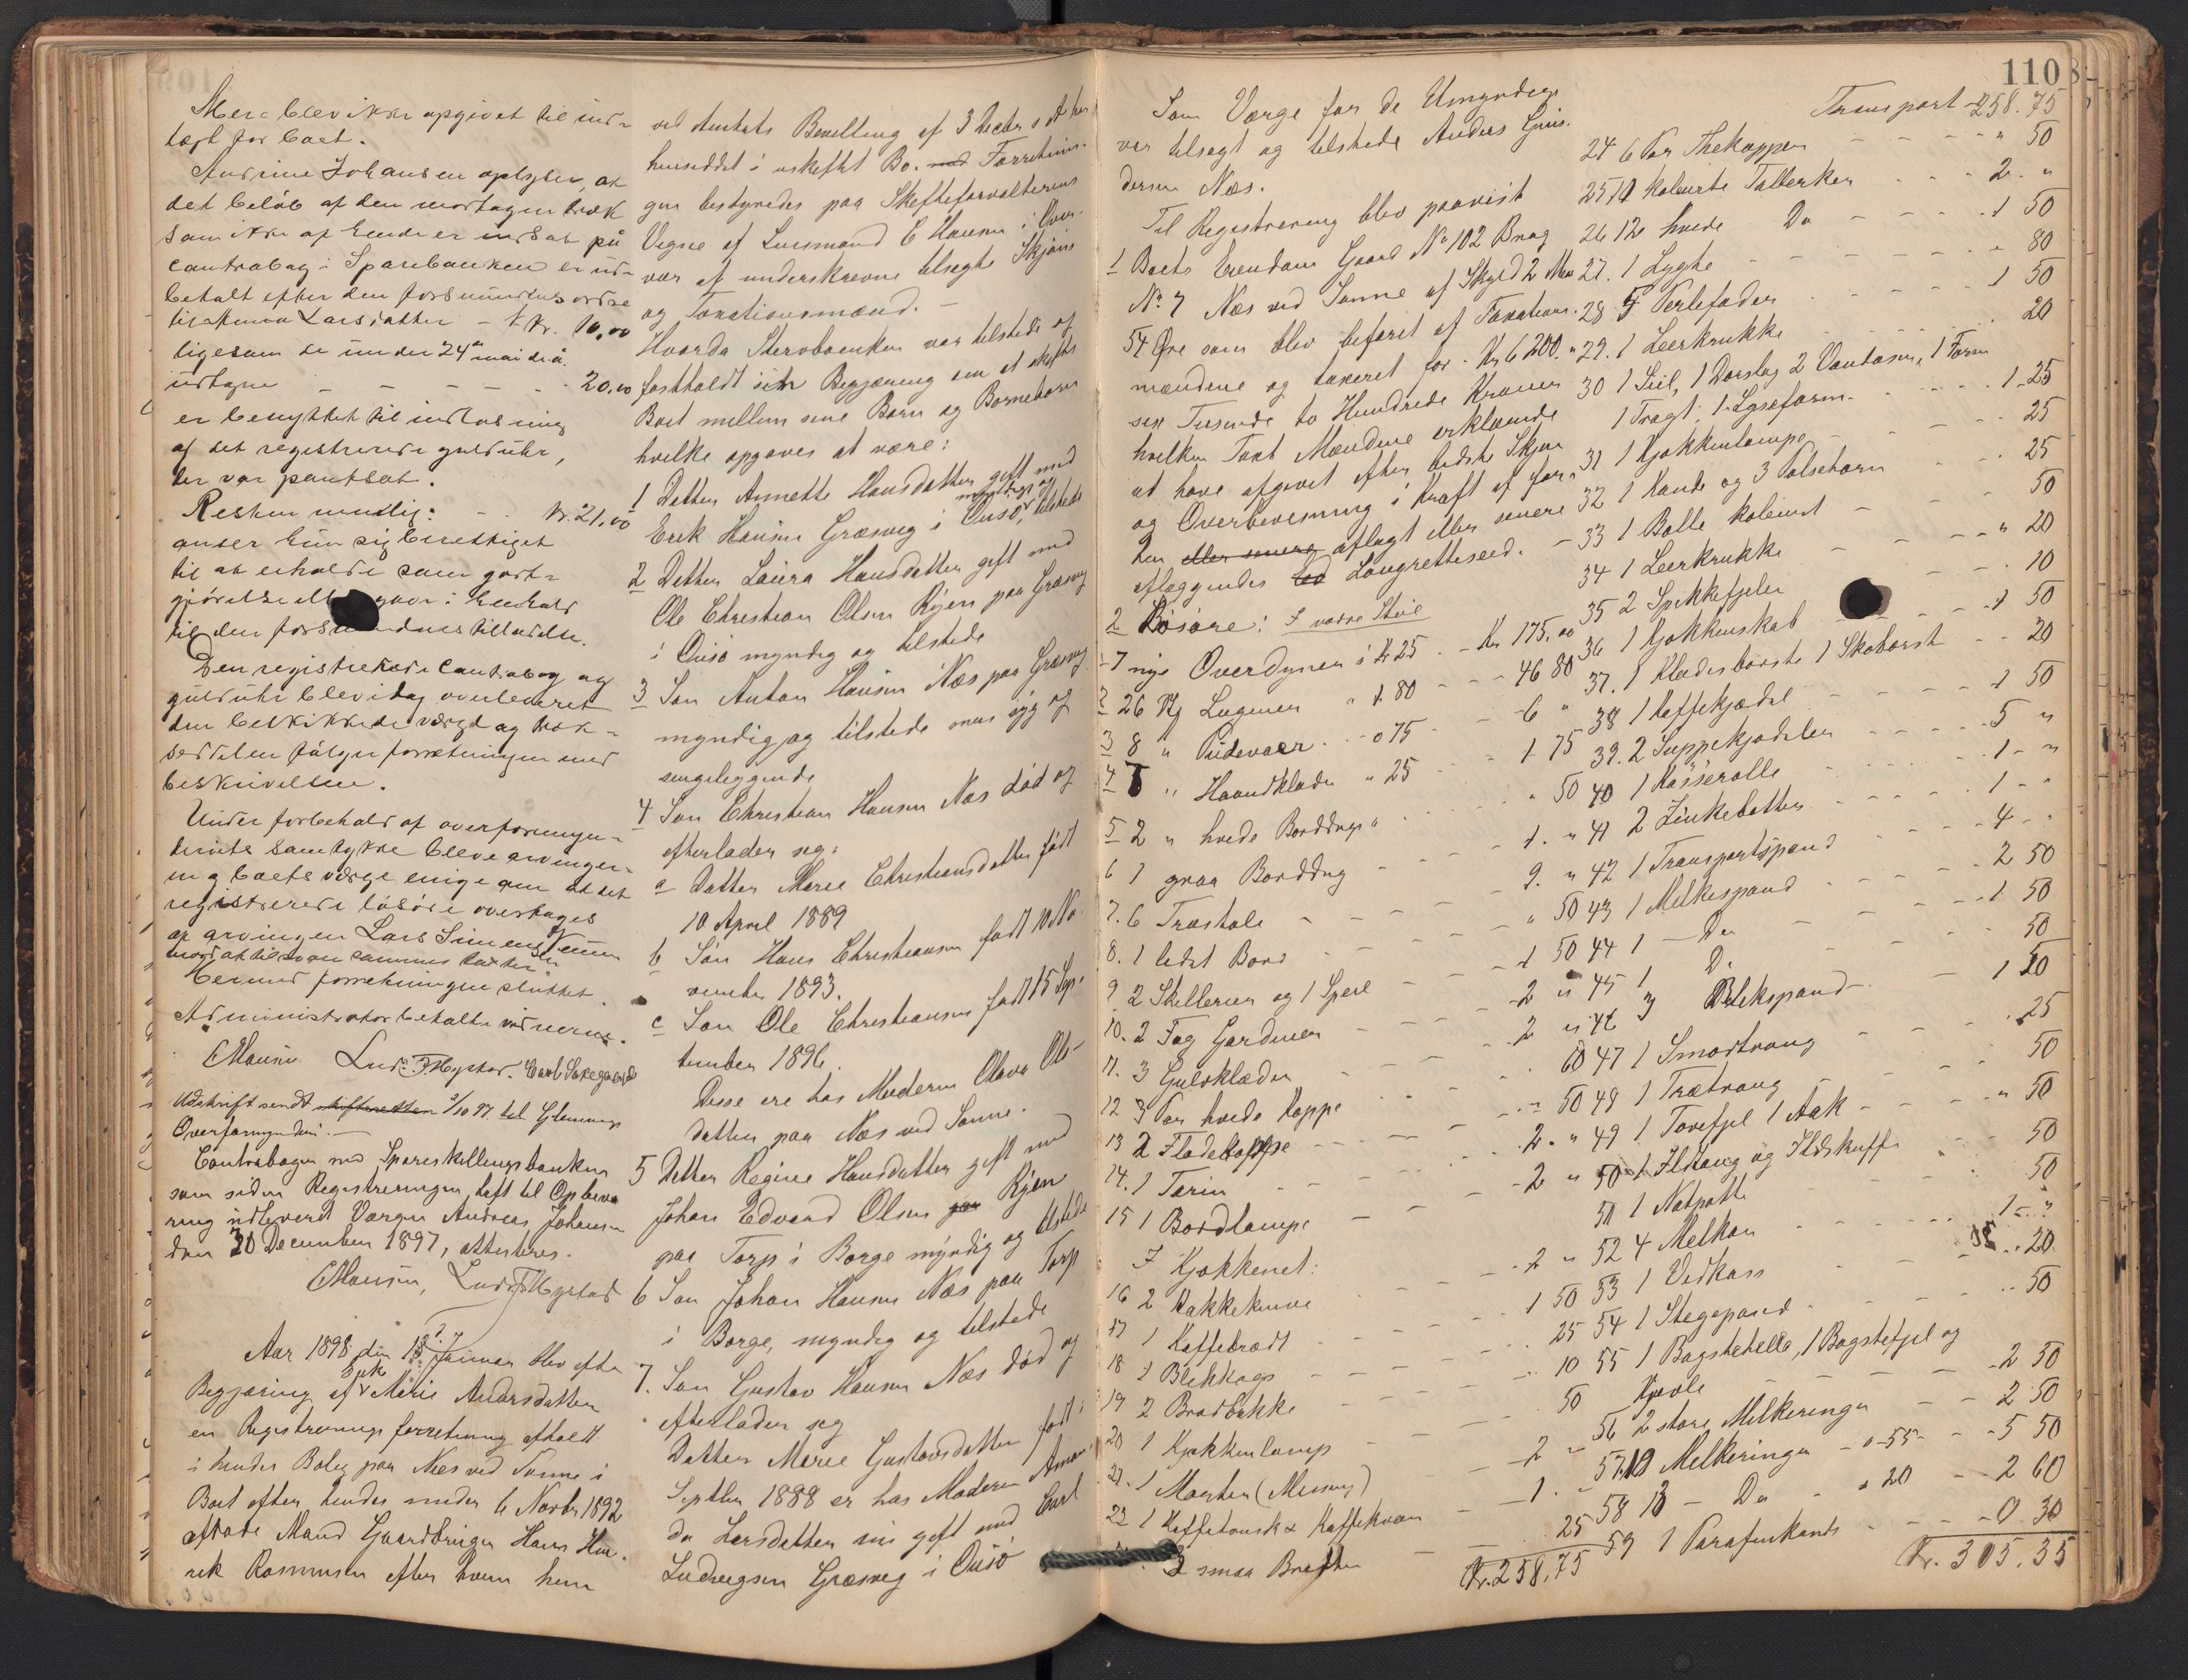 Mere blev ikke opgivet til ind-
tægt for boet.
Andrine Johansen oplyser, at
det beløb af den modtagne
som ikke af hende er indsat på
contrabog i Sparebanken er ud-
betalt efter den
til Larsdatter - Kr. 10,00
ligesom de under 24de mai d. å.
udtagne - - - - - 20,00
er benyttet til indløsning
af det registrerede gulduhr,
der var pantsat.
Resten nemlig: - - Kr. 21,00
anser hun sig berettiget
til at erholde som godt-
gjørelse i henhold
til den
Den registrerede contrabog og
gulduhr blev idag overleveret
den beskikkede værge og
seddelen følger forretningen med
beskrivelsen.
Under forbehold af overformyn-
deriets samtykke bleve arvingen-
e og boets værge enige om at det
registrerede løsøre overtages
af arvingen Lars Simensen
mod at tilsvare sammes taxter
Hermed forretningen sluttet.
Administrator betalte vidnerne.
EHansen Ludv. F. Mystad. Carl
Udskrift sendt skifteretten 2/10 97 til Glemminge
Overformynderi. -
Contrabogen med Spareskillingsbanken
som siden Registreringen havt til Opbeva
ring udleveret Værgen Andreas Johansen
den 20 December 1897, attesteres.
EHansen, Ludv F Mystad
Aar 1898 den 13 Januar blev efter
Begjæring af Enk Marie Andersdatter
en Registreringsforretning afholdt
i hendes Bolig paa Næs ved Sanne i
Boet efter hendes under 6 Novbr 1892
afdøde Mand Gaardbruger Hans Hen-
rik Rasmusen efter hvem hun
ved Amtets Bevilling af 3 Decber s A har
hensiddet i uskiftet Bo. med Forretnin-
gen bestyredes paa Skifteforvalterens
Vegne af Lensmand E Hansen i Over-
vær af underskrevne tilsagte Skjøns
og Taxationsmænd. -
Hvorda Stervboenken var tilstede og
fastholdt sin Begjæring om at skifte
Boet mellem sine Børn og Børnebørn
hvilke opgaves at være:
1 Datter Annette Hansdatter gift med
Erik Hansen Græsvig i Onsø, myndig og tilstede
2 Datter Laura Hansdatter gift med
Ole Christian Olsen Rÿen paa Græsvig
i Onsø myndig og tilstede
3 Søn Anton Hansen Næs paa Græsvig
myndig og tilstede men syg og
sengeliggende
4 Søn Christian Hansen Næs død og
efterlader sig:
a Datter Marie Christiansdatter født
10 April 1889
b Søn Hans Christiansen født 10 No-
vember 1893.
c Søn Ole Christiansen født 15 Sep-
tember 1896.
Disse ere hos Moderen Olava Ols-
datter paa Næs ved Sanne.
5 Datter Regine Hansdatter gift med
Johan Edvard Olsen paa Rÿen
paa Torp i Borge mÿndig og tilstede
6 Søn Johan Hansen Næs paa Torp
i Borge, myndig og tilstede
7. Søn Gustav Hansen Næs død og
efterlader sig
Datter Marie Gustavsdatter født i
Septber 1888 er hos Moderen Aman-
da Larsdatter nu gift med Carl
Ludvigsen Græsvig i Onsø
110
Som Værge for de Umyndige
var tilsagt og tilstede Anders Gun-
dersen Næs.
Til Registrering blev paavist
1 Boets Eiendom Gaard No 102 Brug
No 7 Næs ved Sanne af Skyld 2 Mark
54 Øre som blev befaret af Taxations-
mændene og taxeret for - Kr 6200. "
sex Tusinde to Hundrede Kroner
hvilken Taxt Mændene erklærede
at have afgivet efter bedste Skjøn
og Overbevisning i Kraft af før-
hen eller senere aflagt eller senere
aflæggendes Ed Laugretteseed. -
2 Løsøre: I
1 7 nye Overdyner à Kr 25 - Kr 175.00
2 26 Kg Lagener " 1.80 - - - 46 80
3 8 " Pudevaar - 0 75 - 6 "
4 7 " Haandklæder " 25 - - 1 75
5 2 " hvide Borddug " - - " 50
6 1 graa Borddug - - - 1. "
7. 6 Træstole - - - - 9. "
8. 1 lidet Bord - - - " 50
9 2 Skillerier og 1 Speil - - 1 50
10. 2 Fag Gardiner - - - 2 "
11. 3 Gulvklæder - - - 2 "
12 3 Par hvide Koppe - - - 60
13 2 Fladekoppe - - - - 50
14. 1 Terin - - - - 2. "
15 1 Bordlampe - - - 2 "
I Kjøkkenet:
16 2 Hakkeknive - - - 2 "
17 1 Kaffebrædt - - - 1 50
18 1 Blikkop - - - 25
19 2 Brødbakke - - - 10
20 1 Kjøkkenlampe - - - 50
21. 1 Morter (Messing) - - 2 "
22 1 Kaffetønde & Kaffekvern - - 1. "
2 smaa Bretter - - 25
Kr. 258,75
Transport - 258.75
24 6 Par Thekopper - - - " 50
25 10 kolørte Tallerken - - 2. "
26 12 hvide Do - - - 1 50
27. 1 Lygte - - - - " 80
28 5 Perlefader - - - - 1 50
29. 1 Leerkrukke - - - - 20
30 1 Siil, 1 Dørslag 2 Vandøser, 1 Form
1 Tragt, 1 Lyseform - - - 1 25
31 1 Kjøkkenlampe - - - 25
32 1 Kande og 3 - - 25
33 1 Bolle kolørt - - - 50
34 1 Leerkrukke - - - " 20
35 2 Spekkefjeler - - - 10
36 1 Kjøkkenskab - - 1 50
37. 1 Klædesbørste 1 Skobørste - - 20
38 1 Kaffekjædel - - - 1 50
39. 2 Suppekjædeler - - - 5 "
40 1 Kasserolle - - - - 1 - "
41 2 Zinkebøtter - - - - 1 - "
42 1 Transportspand - - - 4 - "
43 1 Melkespand - - - - 2 50
44 1 - Do - - - - 1 50
45 1 Do - - - 50
46 3 Blikspand - - - 1 50
47 1 Smørtraug - - - 25
48 1 Trætraug - - - - 50
49 1 Tørefjel 1 Aak - - - " 50
50 1 Ildtang og Ildskuffe - - 50
51 1 Natpotte - - - - 50
52 4 Melkøn - - - - 1 - "
53 1 Vedkass - - - - 20
54 1 Stegepande - - - - 50
55 1 Bagstehelle, 1 Bagstefjel og
Kjevle - - - 2 50
56 2 store Melkeringer - - 2 50
57. 10 Melkeringer - à 55 - - 5 50
58 13 - Do - à 20 - - 2 60
59 1 Parafinkande - - - 0 30
Kr. 305.35